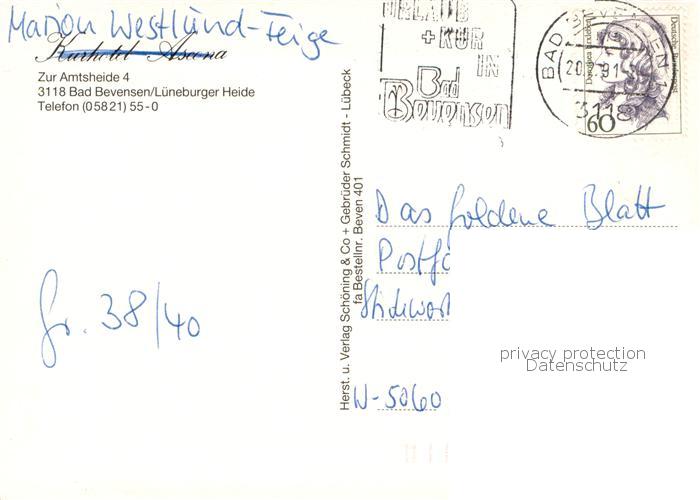 Marion Westlund-Feige
Kurhotel Ascona
Zur Amtsheide 4
3118 Bad Bevensen/Lüneburger Heide
Telefon (0 58 21) 55-0
Gr. 38/40
Herst. u. Verlag Schöning & Co + Gebrüder Schmidt - Lübeck
fa Bestellnr. Beven 401
URLAUB
+ KUR
IN
Bad
Bevensen
BAD BEVENSEN 1
20. 91-
3118
Deutsche Bundespost
60
Das Goldene Blatt
Postfc
Stichwort
W-5060
privacy protection
Datenschutz